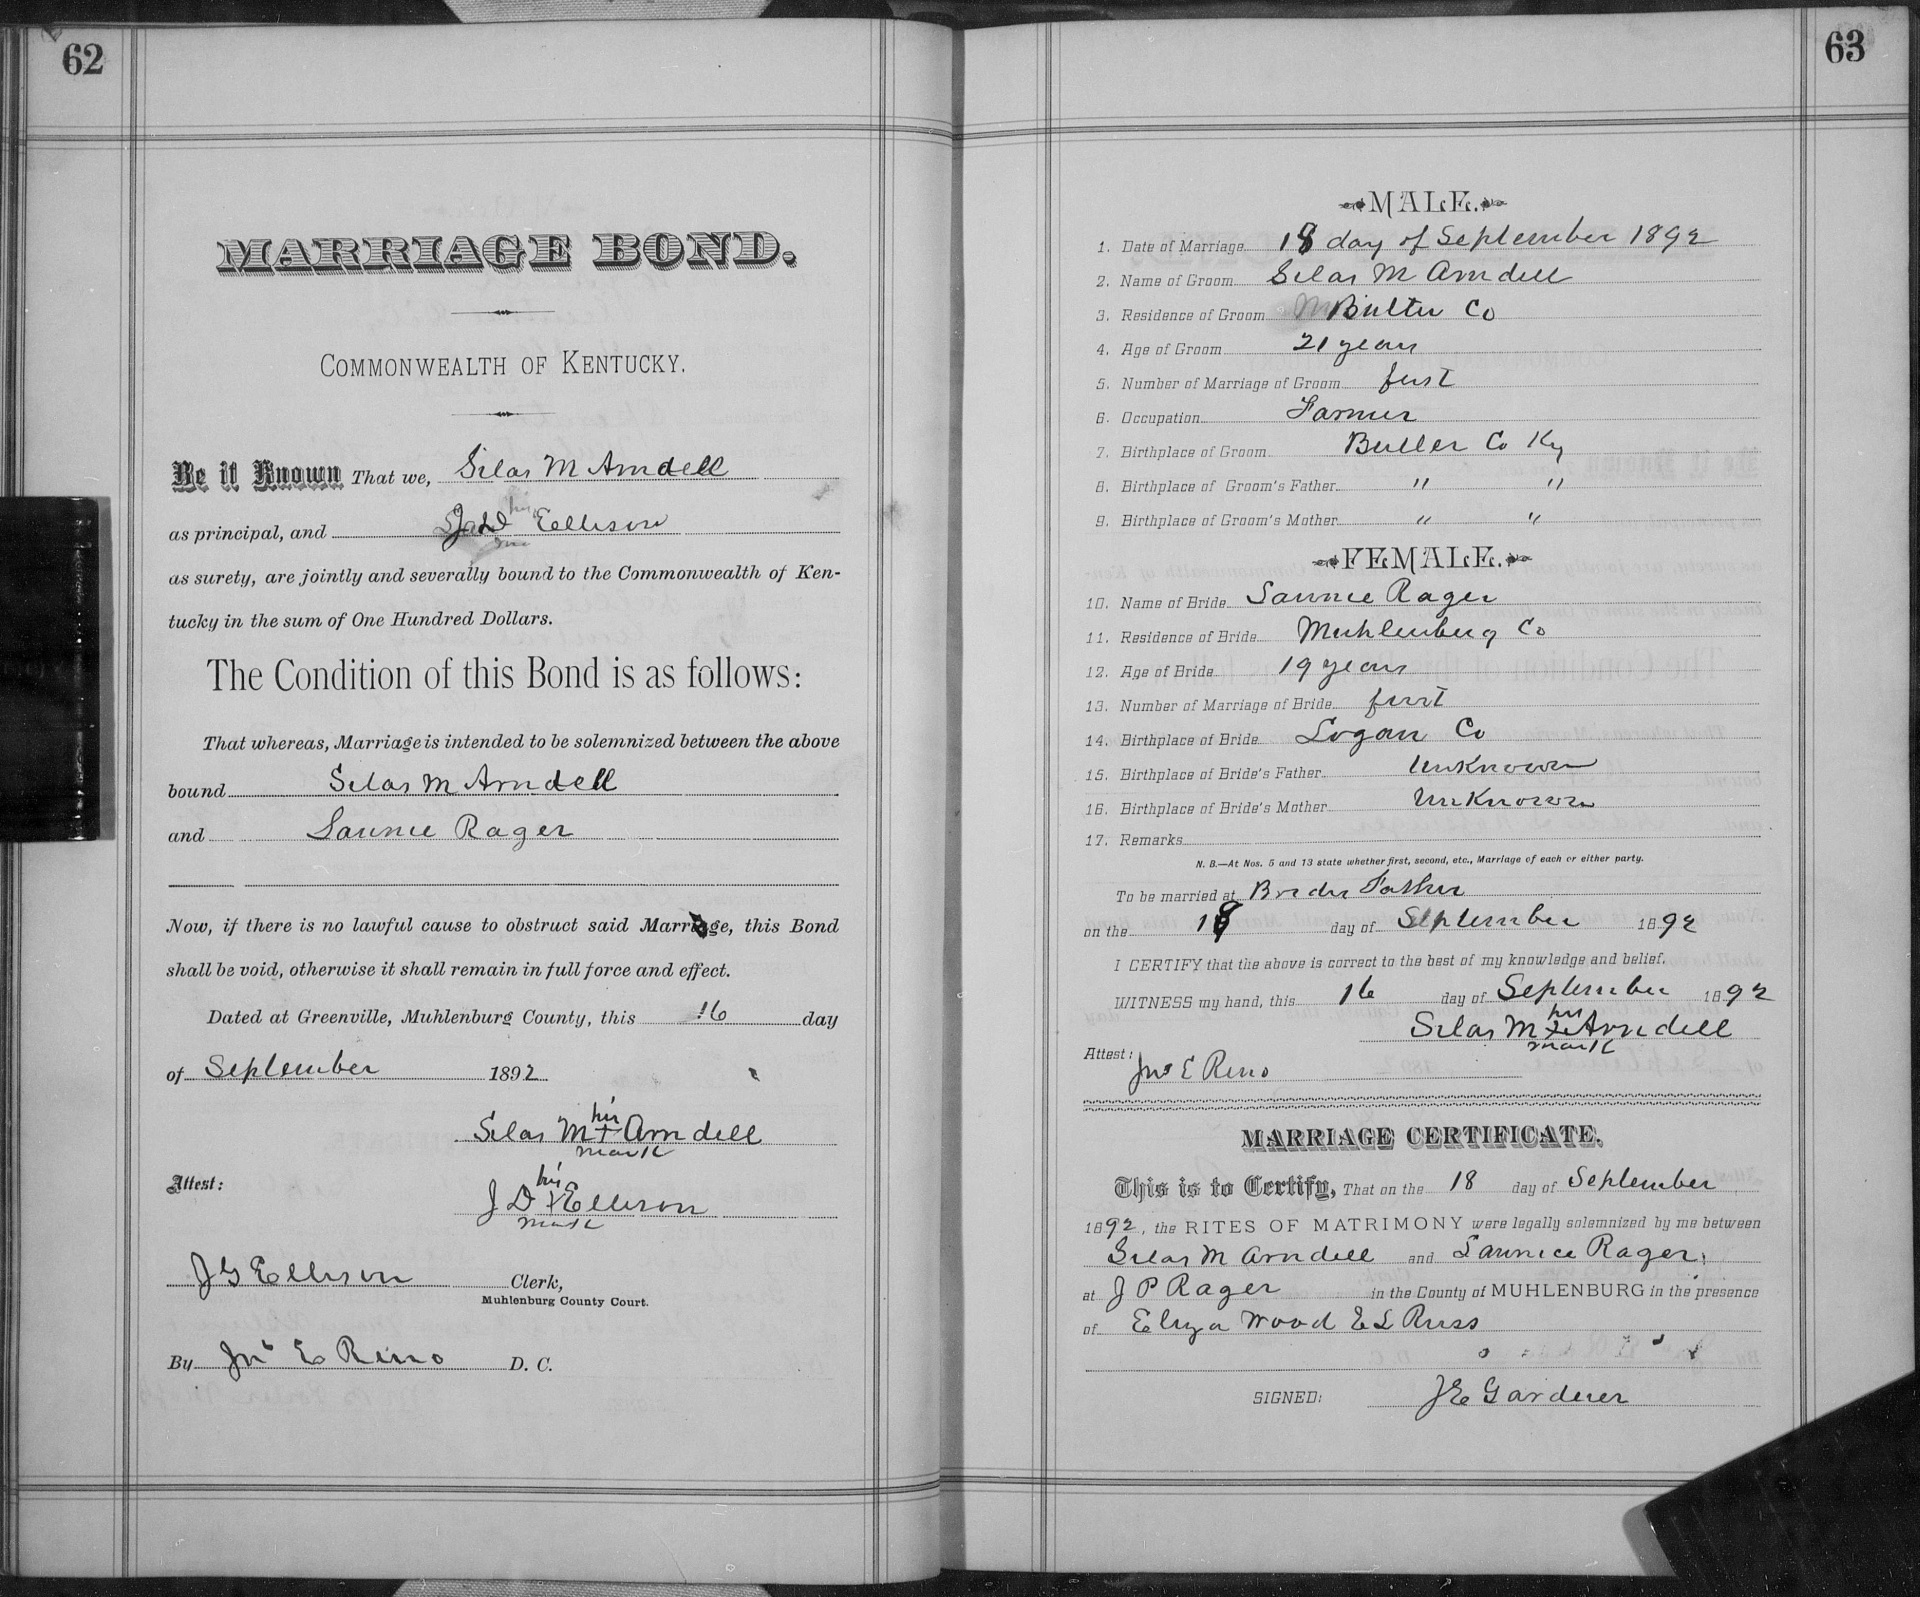 62
MARRIAGE BOND.
COMMONWEALTH OF KENTUCKY.
Be it Known That we, Silas M Arndell
as principal, and J D his Ellison
as surety, are jointly and severally bound to the Commonwealth of Ken-
tucky in the sum of One Hundred Dollars.
The Condition of this Bond is as follows:
That whereas, Marriage is intended to be solemnized between the above
bound Silas M Arndell
and Launie Rager
Now, if there is no lawful cause to obstruct said Marriage, this Bond
shall be void, otherwise it shall remain in full force and effect.
Dated at Greenville, Muhlenburg County, this 16 day
of September 1892
his
Silas M + Arndell
mark
Attest:
his
J D + Ellison
mark
J G Ellison Clerk,
Muhlenburg County Court.
By Jno E Reno D. C.
63
MALE.
1. Date of Marriage 18 day of September 1892
2. Name of Groom Silas M Arndell
3. Residence of Groom Butler Co
4. Age of Groom 21 years
5. Number of Marriage of Groom first
6. Occupation Farmer
7. Birthplace of Groom Butler Co Ky
8. Birthplace of Groom's Father " "
9. Birthplace of Groom's Mother " "
FEMALE.
10. Name of Bride Launie Rager
11. Residence of Bride Muhlenburg Co
12. Age of Bride 19 years
13. Number of Marriage of Bride first
14. Birthplace of Bride Logan Co
15. Birthplace of Bride's Father Unknown
16. Birthplace of Bride's Mother Unknown
17. Remarks
N. B.—At Nos. 5 and 13 state whether first, second, etc., Marriage of each or either party.
To be married at Brides Father
on the 18 day of September 1892
I CERTIFY that the above is correct to the best of my knowledge and belief.
WITNESS my hand, this 16 day of September 1892
his
Silas M + Arndell
mark
Attest:
Jno E Reno
MARRIAGE CERTIFICATE.
This is to Certify, That on the 18 day of September
1892, the RITES OF MATRIMONY were legally solemnized by me between
Silas M Arndell and Launice Rager
at J P Rager in the County of MUHLENBURG in the presence
of Eliza Wood E L Russ
SIGNED: J E Gardner